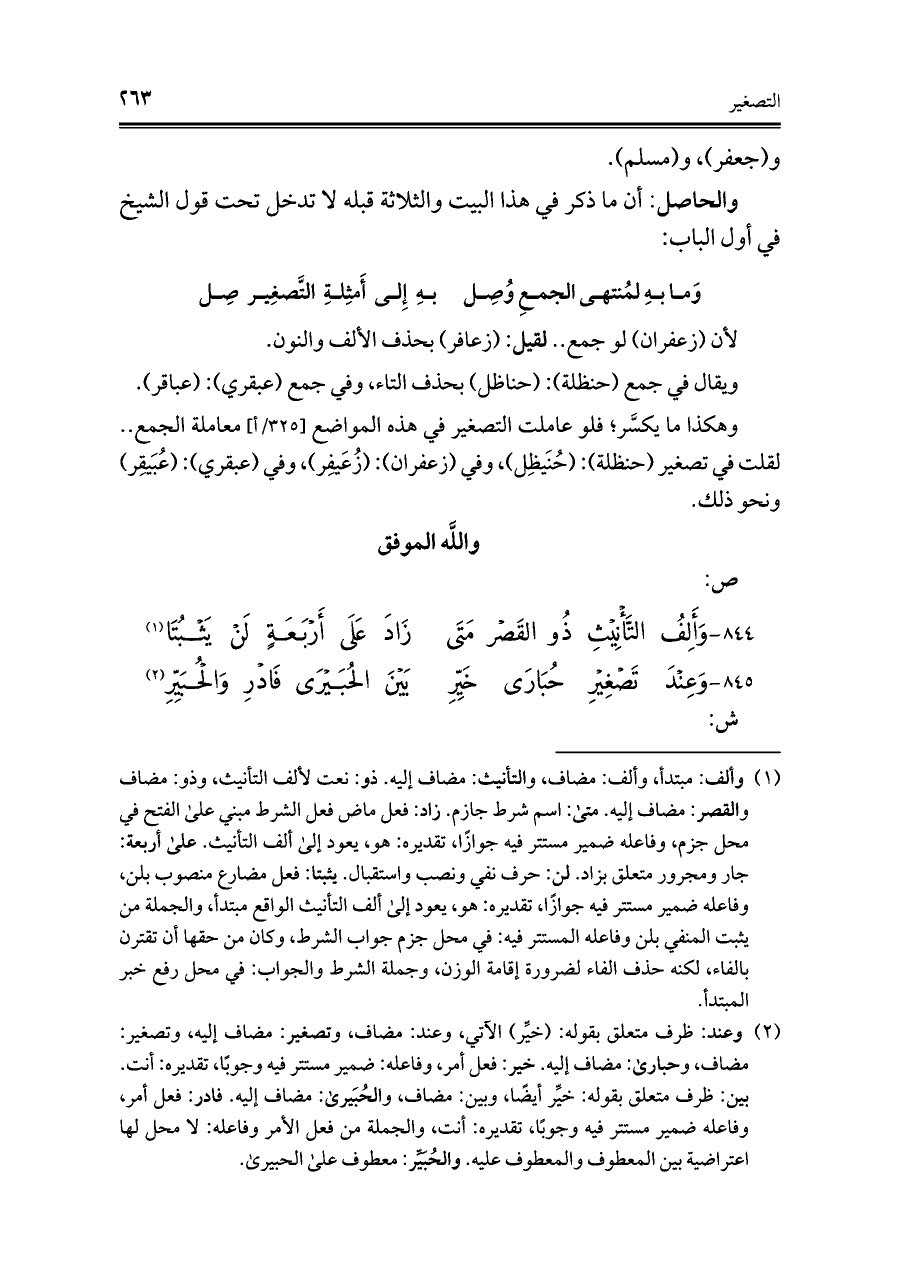 التصغير ٢٦٣
و(جعفر)، و(مسلم).
والحاصل: أن ما ذكر في هذا البيت والثلاثة قبله لا تدخل تحت قول الشيخ
في أول الباب:
وَمـا بـهِ لمُنتهـى الجمـعِ وُصِـل بـهِ إِلـى أَمثِلـةِ التَّصغِيـر صِـل
لأن (زعفران) لو جمع.. لقيل: (زعافر) بحذف الألف والنون.
ويقال في جمع (حنظلة): (حناظل) بحذف التاء، وفي جمع (عبقري): (عباقر).
وهكذا ما يكسَّر؛ فلو عاملت التصغير في هذه المواضع [٣٢٥/أ] معاملة الجمع..
لقلت في تصغير (حنظلة): (حُنَيظِل)، وفي (زعفران): (زُعَيفِر)، وفي (عبقري): (عُبَيقِر)
ونحو ذلك.
واللَّه الموفق
ص:
٨٤٤-وَأَلِفُ التَّأْنِيْثِ ذُو القَصْر مَتَى زَادَ عَلَى أَرْبَعَـةٍ لَنْ يَثْـبُتَا(١)
٨٤٥-وَعِنْدَ تَصْغِيْرِ حُبَارَى خَيِّرِ بَيْنَ الحُبَـيْرَى فَادْرِ وَالْحُـبَيِّرِ(٢)
ش:
(١) وألف: مبتدأ، وألف: مضاف، والتأنيث: مضاف إليه. ذو: نعت لألف التأنيث، وذو: مضاف
والقصر: مضاف إليه. متىٰ: اسم شرط جازم. زاد: فعل ماض فعل الشرط مبني علىٰ الفتح في
محل جزم، وفاعله ضمير مستتر فيه جوازًا، تقديره: هو، يعود إلىٰ ألف التأنيث. علىٰ أربعة:
جار ومجرور متعلق بزاد. لن: حرف نفي ونصب واستقبال. يثبتا: فعل مضارع منصوب بلن،
وفاعله ضمير مستتر فيه جوازًا، تقديره: هو، يعود إلىٰ ألف التأنيث الواقع مبتدأ، والجملة من
يثبت المنفي بلن وفاعله المستتر فيه: في محل جزم جواب الشرط، وكان من حقها أن تقترن
بالفاء، لكنه حذف الفاء لضرورة إقامة الوزن، وجملة الشرط والجواب: في محل رفع خبر
المبتدأ.
(٢) وعند: ظرف متعلق بقوله: (خيِّر) الآتي، وعند: مضاف، وتصغير: مضاف إليه، وتصغير:
مضاف، وحبارىٰ: مضاف إليه. خير: فعل أمر، وفاعله: ضمير مستتر فيه وجوبًا، تقديره: أنت.
بين: ظرف متعلق بقوله: خيِّر أيضًا، وبين: مضاف، والحُبَيرىٰ: مضاف إليه. فادر: فعل أمر،
وفاعله ضمير مستتر فيه وجوبًا، تقديره: أنت، والجملة من فعل الأمر وفاعله: لا محل لها
اعتراضية بين المعطوف والمعطوف عليه. والحُبَيِّر: معطوف علىٰ الحبيرىٰ.